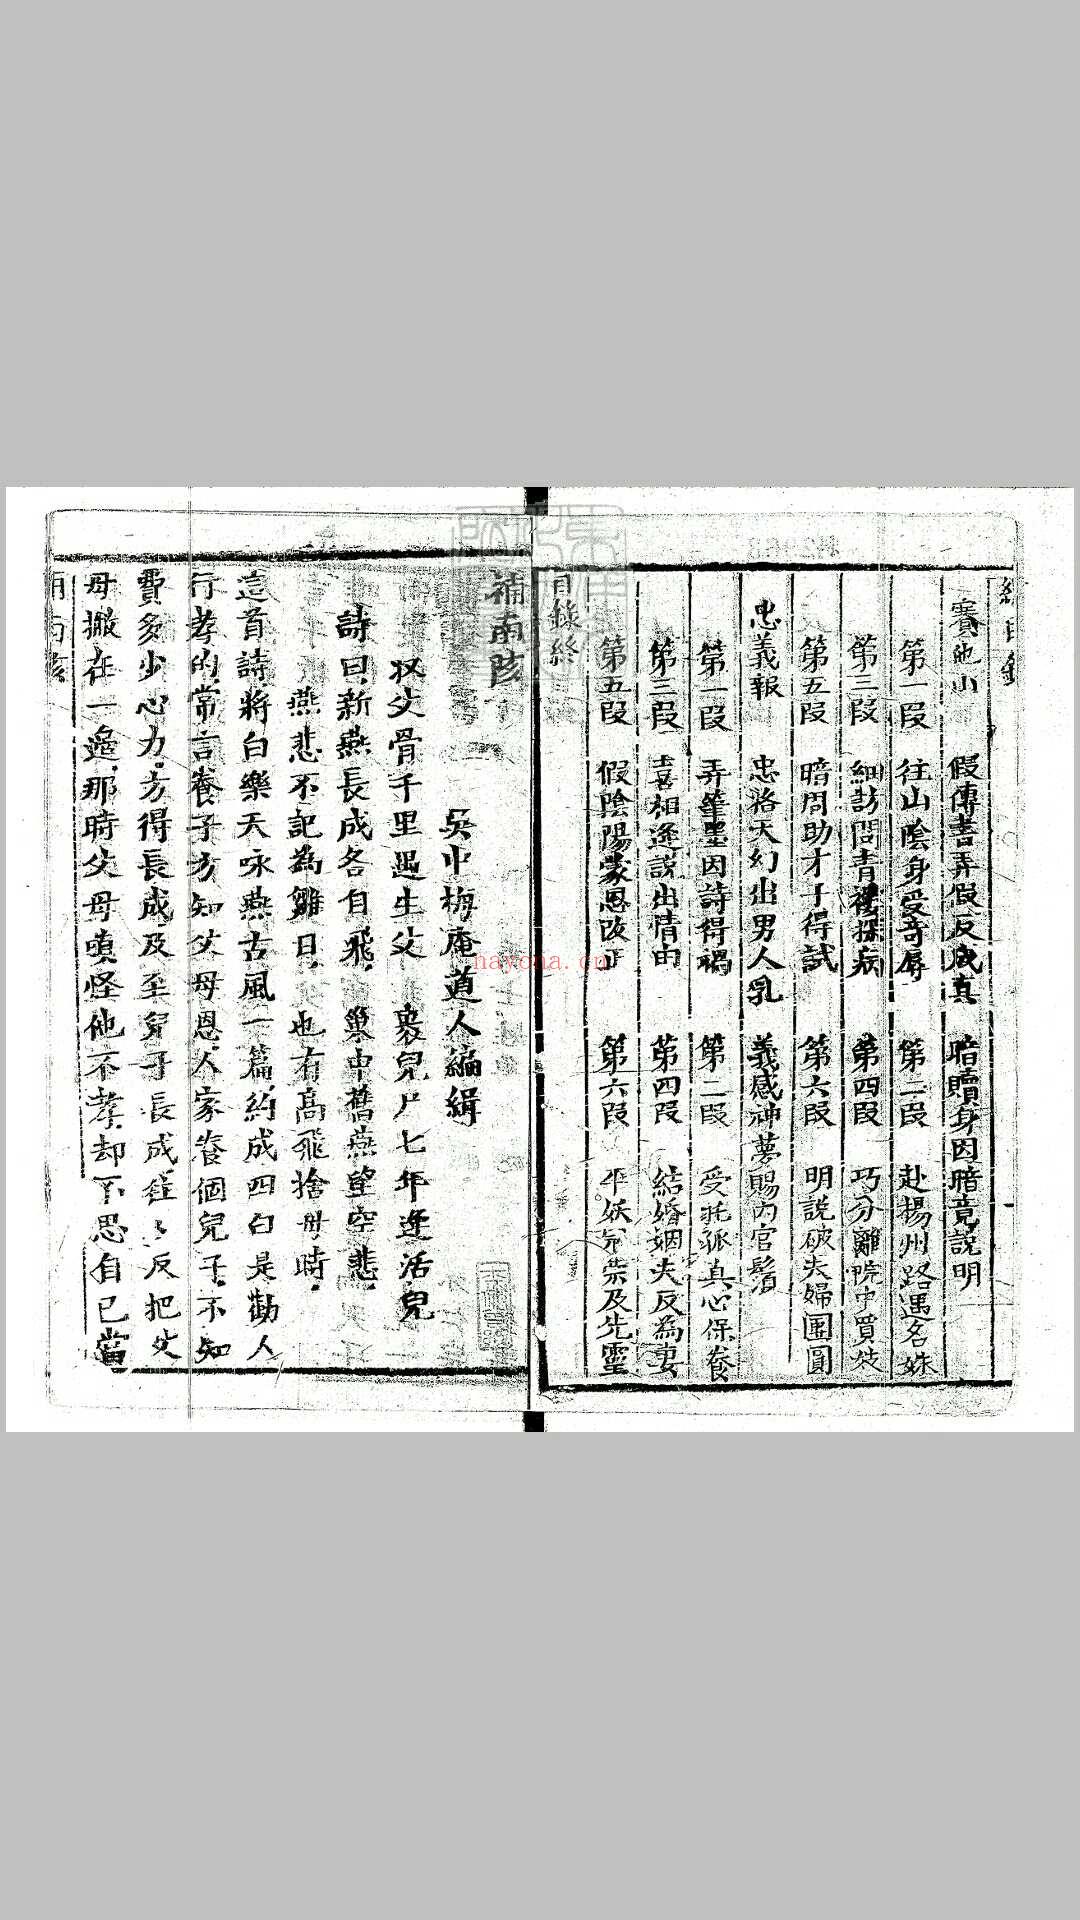 賽他山　假傳書弄假反成真　暗贖身因暗竟說明
第一段　往山陰身受奇辱　第二段　赴揚州路遇名姝
第三段　細訪問青樓探病　第四段　巧分離院中買妓
第五段　暗周助才子得試　第六段　明說破夫婦團圓
忠義報　忠格天幻出男人乳　義感神夢賜內官鬚
第一段　弄筆墨因詩得禍　第二段　受托孤真心保養
第三段　喜相逢說出情由　第四段　結婚姻夫反為妻
第五段　假陰陽蒙恩改正　第六段　平妖
目錄終
補南陔
吳中梅庵道人編緝
收父骨千里遇生父　裹兒尸七年逢活兒
詩曰新燕長成各自飛　巢中舊燕望空悲
燕悲不記為雛日　也有高飛捨母時
這首詩將白樂天咏燕古風一篇約成四句是勸人
行孝的常言養子方知父母恩人家養個兒子不知
費多少心力方得長成及至兒子長成往々反把父
母撇在一邊那時父母嗔怪他不孝却不思自己當
nayona.cn